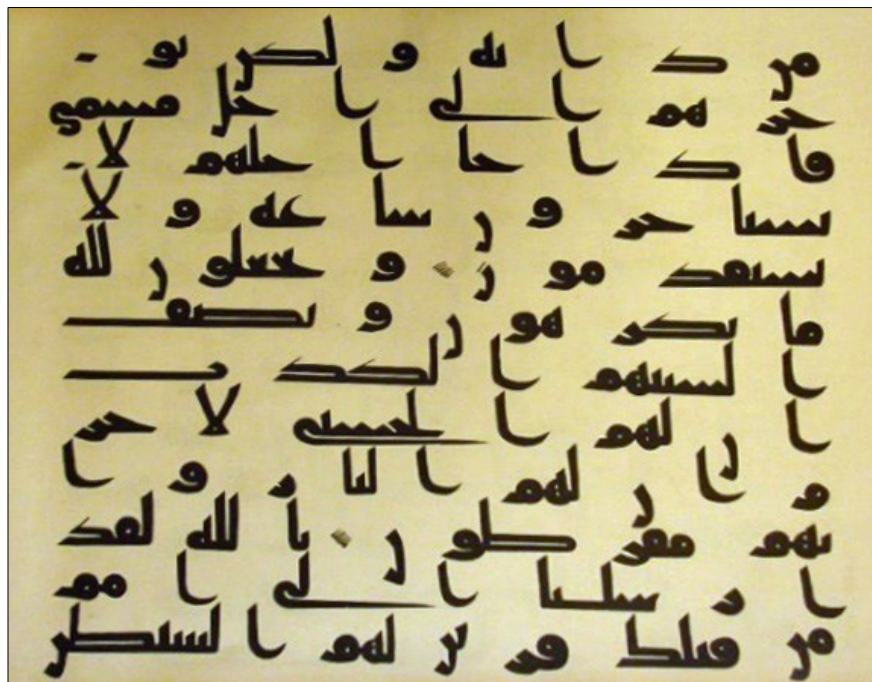 من دابه ولكن يو-
خرهم الى اجل مسمى
فاذا جا اجلهم لا -
يستاخرون ساعه ولا
يستقدمون ويجعلون لله
ما يكرهون وتصف
السنتهم الكذب
ان لهم الحسنى لا جر
م ان لهم النار وا
نهم مفرطون تالله لقد
ارسلنا الى امم
من قبلك فزين لهم الشيطن